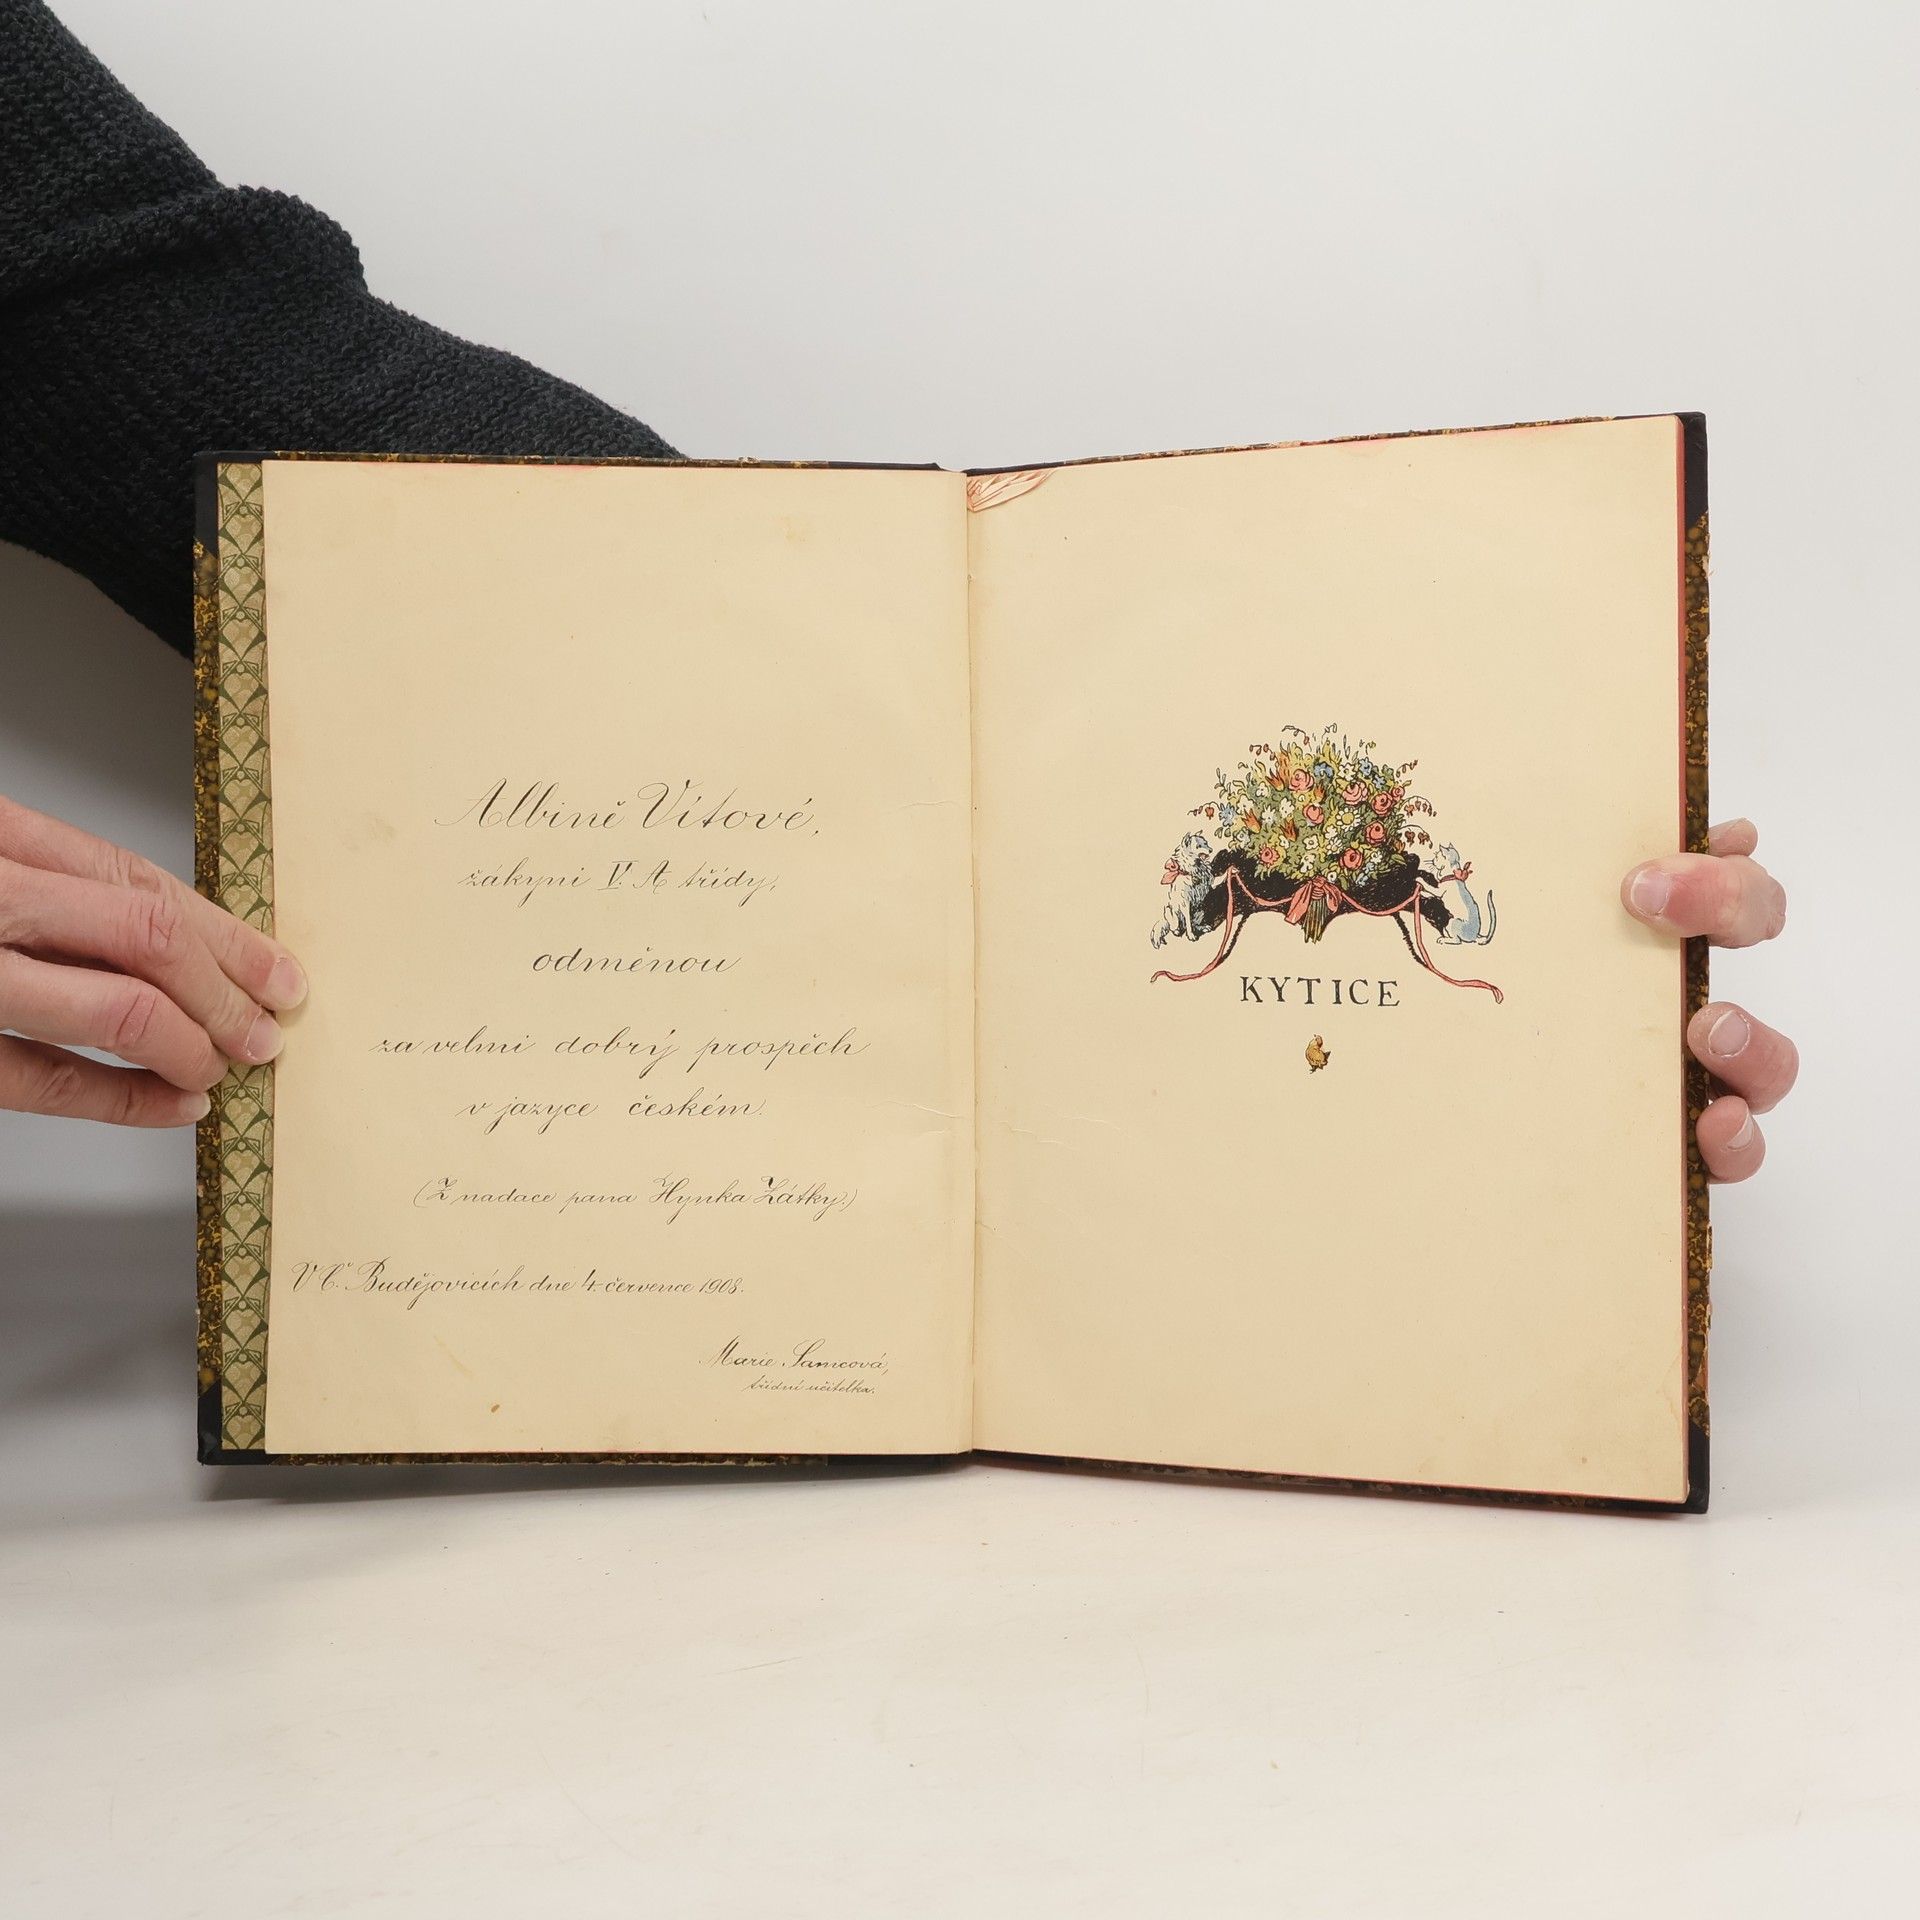 Albině Vítové,
žákyni V. A třídy,
odměnou
za velmi dobrý prospěch
v jazyce českém.
(Z nadace pana Hynka Zátky.)
V Č. Budějovicích dne 4. července 1908.
Marie Samcová,
třídní učitelka.
KYTICE